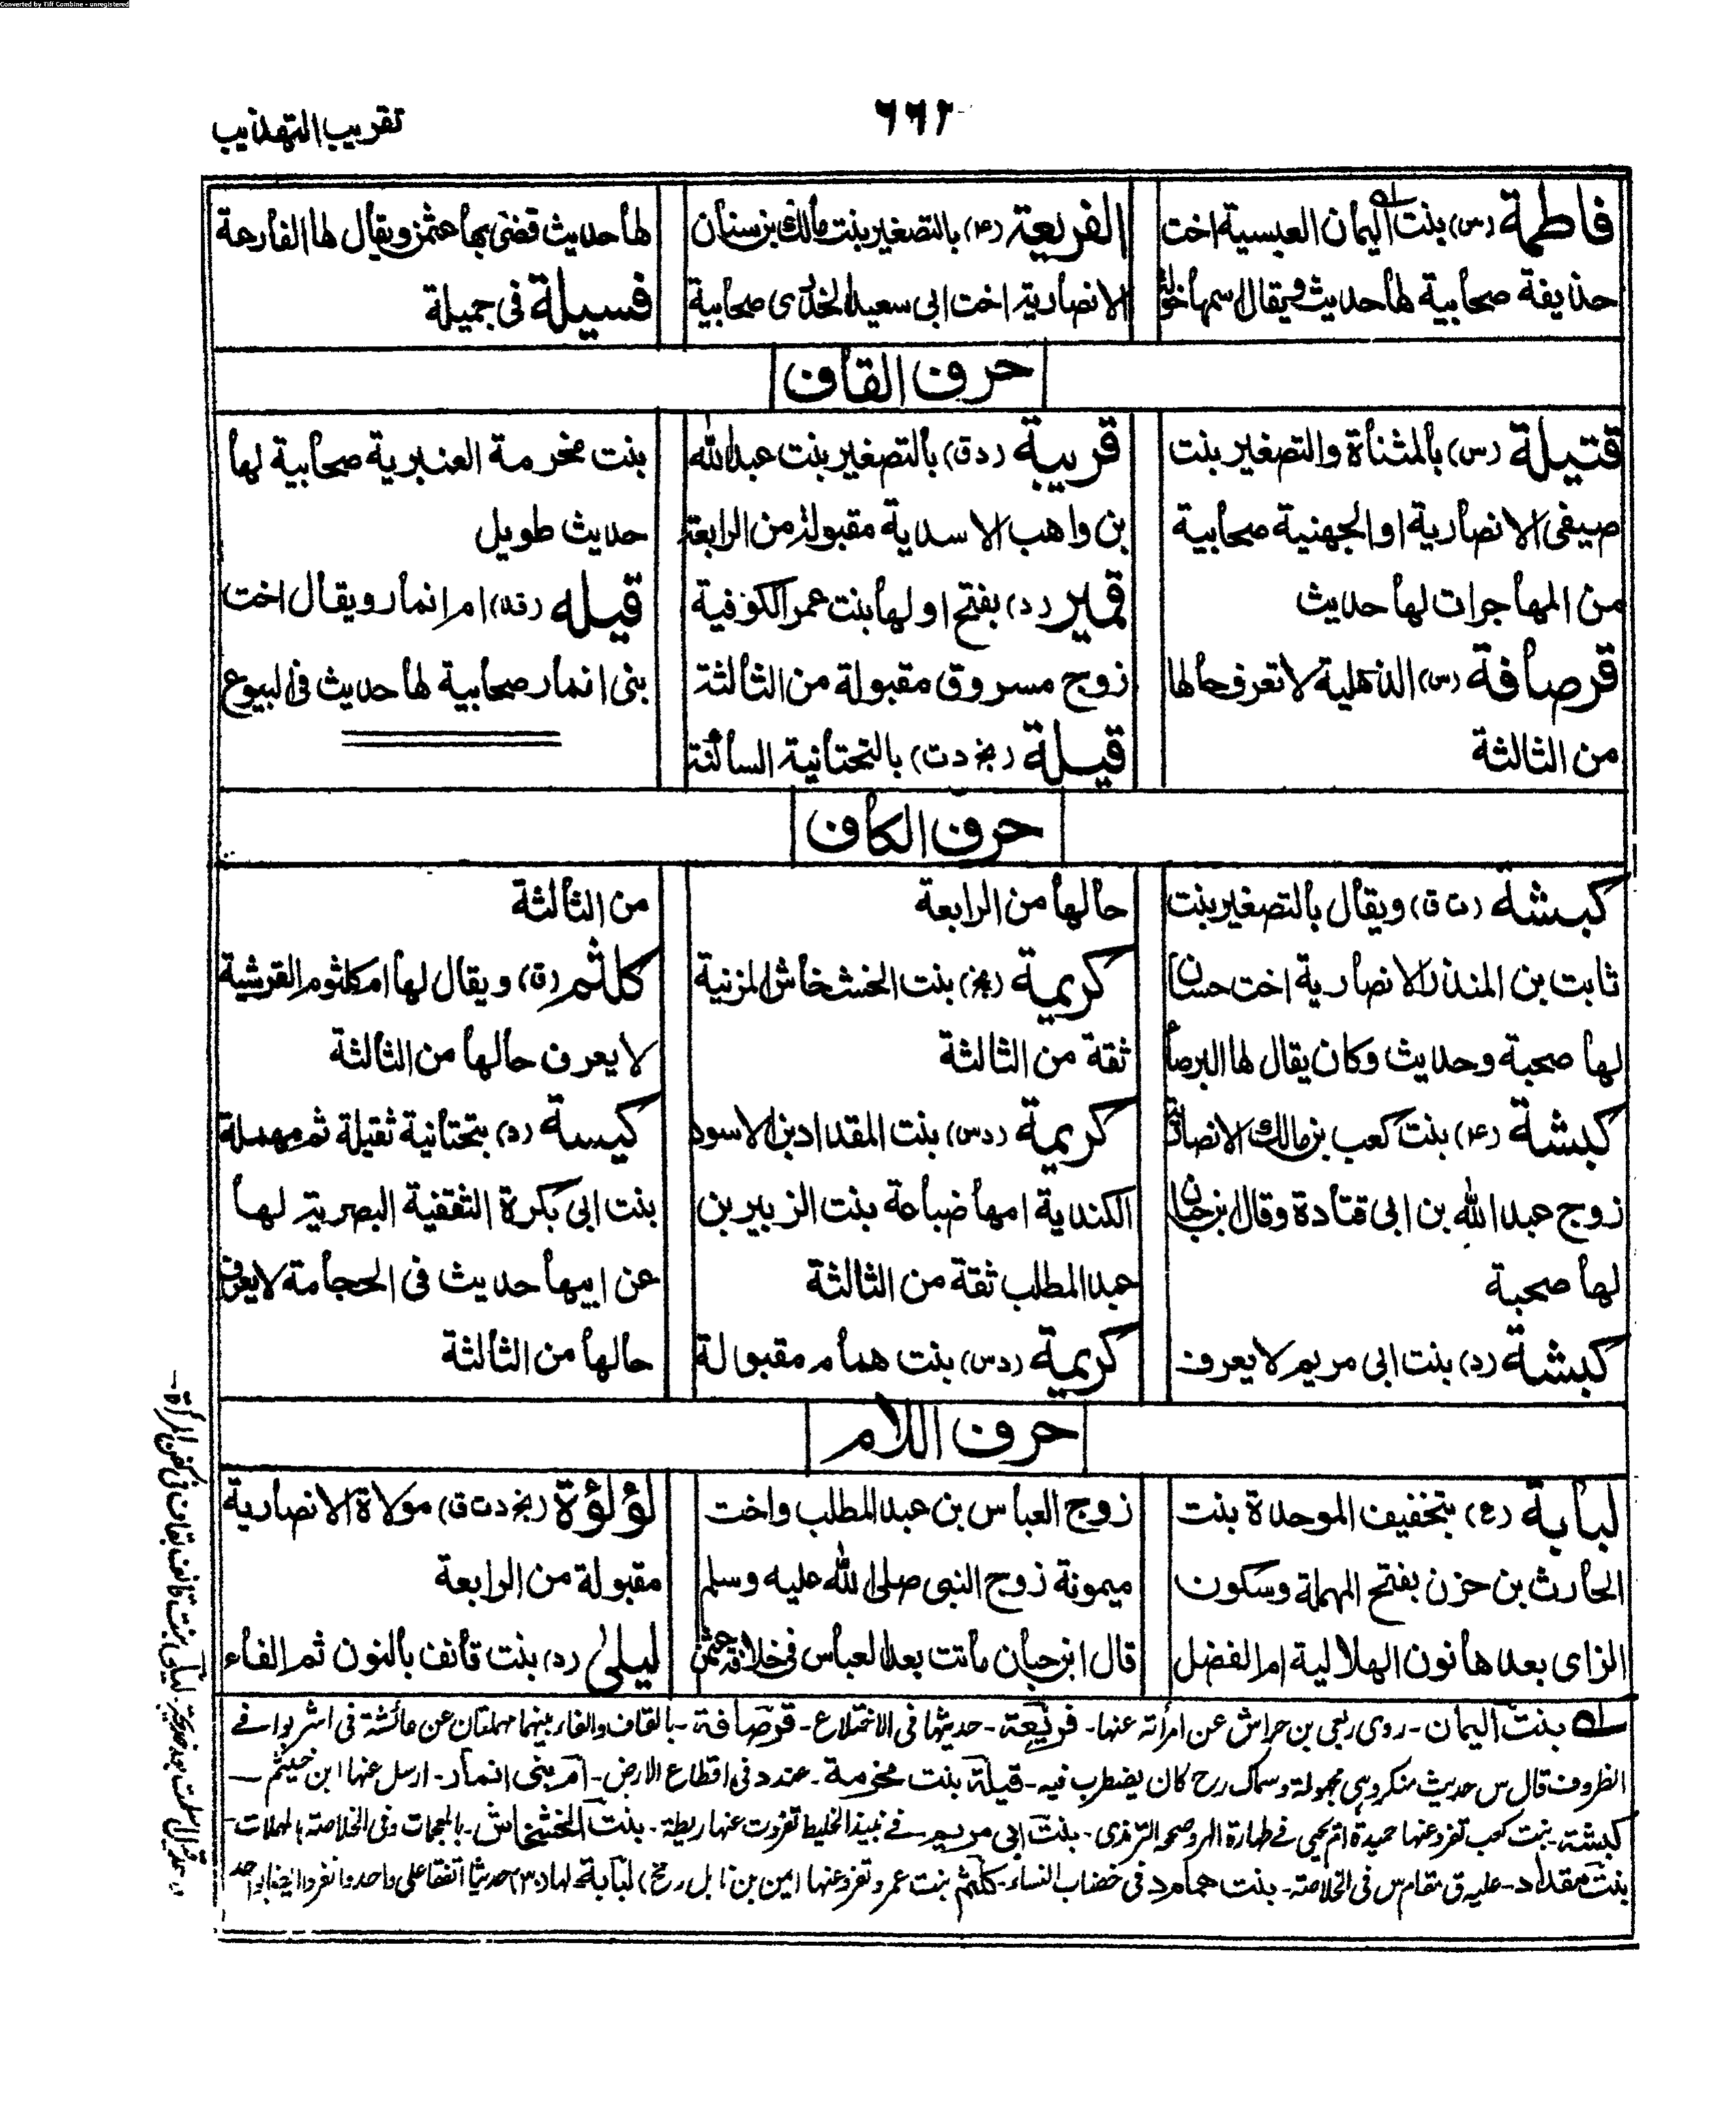 Converted by Tiff Combine - unregistered
٦٦٢
تقريب التهذيب
فاطمة (س) بنت اليمان العبسية اخت
حذيفة صحابية لها حديث ويقال اسمها خولة
الفريعة (٤) بالتصغير بنت مالك بن سنان
الانصارية اخت ابى سعيد الخدرى صحابية
لها حديث قضى بها عثمن ويقال لها الفارعة
فسيلة فى جميلة
حرف القاف
قتيلة (س) بالمثناة والتصغير بنت
صيفى الانصارية او الجهنية صحابية
من المهاجرات لها حديث
قرصافة (س) الذهلية لا تعرف حالها
من الثالثة
قريبة (دق) بالتصغير بنت عبد الله
بن واهب الاسدية مقبولة من الرابعة
قمير (د) بفتح اولها بنت عمر الكوفية
زوج مسروق مقبولة من الثالثة
قيلة (بخ دت) بالتحتانية الساكنة
بنت مخرمة العنبرية صحابية لها
حديث طويل
قيله (ق) ام انمار ويقال اخت
بنى انمار صحابية لها حديث فى البيوع
حرف الكاف
كبشة (ت ق) ويقال بالتصغير بنت
ثابت بن المنذر الانصارية اخت حسان
لها صحبة وحديث وكان يقال لها البرصا
كبشة (٤) بنت كعب بن مالك الانصارية
زوج عبد الله بن ابى قتادة وقال ابن حبان
لها صحبة
كبشة (د) بنت ابى مريم لا يعرف
حالها من الرابعة
كريمة (بخ) بنت الخشخاش المزنية
ثقة من الثالثة
كريمة (دس) بنت المقداد بن الاسود
الكندية امها ضباعة بنت الزبير بن
عبد المطلب ثقة من الثالثة
كريمة (دس) بنت همام مقبولة
من الثالثة
كلثم (ق) ويقال لها ام كلثوم القرشية
لا يعرف حالها من الثالثة
كيسة (د) بتحتانية ثقيلة ثم مهملة
بنت ابى بكرة الثقفية البصرية لها
عن ابيها حديث فى الحجامة لا يعرف
حالها من الثالثة
حرف اللام
لبابة (ع) بتخفيف الموحدة بنت
الحارث بن حزن بفتح المهملة وسكون
الزاى بعدها نون الهلالية ام الفضل
زوج العباس بن عبد المطلب واخت
ميمونة زوج النبى صلى الله عليه وسلم
قال ابن حبان ماتت بعد العباس فى خلافة عثمن
لؤلؤة (بخ دت ق) مولاة الانصارية
مقبولة من الرابعة
ليلى (د) بنت قانف بالنون ثم الفاء
بنت اليمان - روى ربعى بن حراش عن امرأته عنها - فريعة - حديثها فى الاختلاع - قرصافة - بالقاف والفاء بينهما مهملتان عن عائشة فى اشربوا فى
الظروف قال س حديث منكر وهى مجهولة وسماك رح كان يضطرب فيه - قيلة بنت مخرمة - عند د فى اقطاع الارض - ام بنى انمار - ارسل عنها ابن خيثم -
كبشة - بنت كعب تفرد عنها حميدة ام يحيى فى طهارة الهر وصححه الترمذى - بنت ابى مريم - فى نبيذ الخليط تفردت عنها ريطة - بنت الخشخاش - بالمعجمات وفى الخلاصة بالمهملات -
بنت مقداد - عليه ق مقام س فى الخلاصة - بنت همام د فى خضاب النساء - كلثم بنت عمرو تفرد عنها ايمن بن نابل لبابة لها (٣٠) حديثا اتفقا على واحد وانفرد
ليلى بنت قانف بقاف فى كفن المرأة -